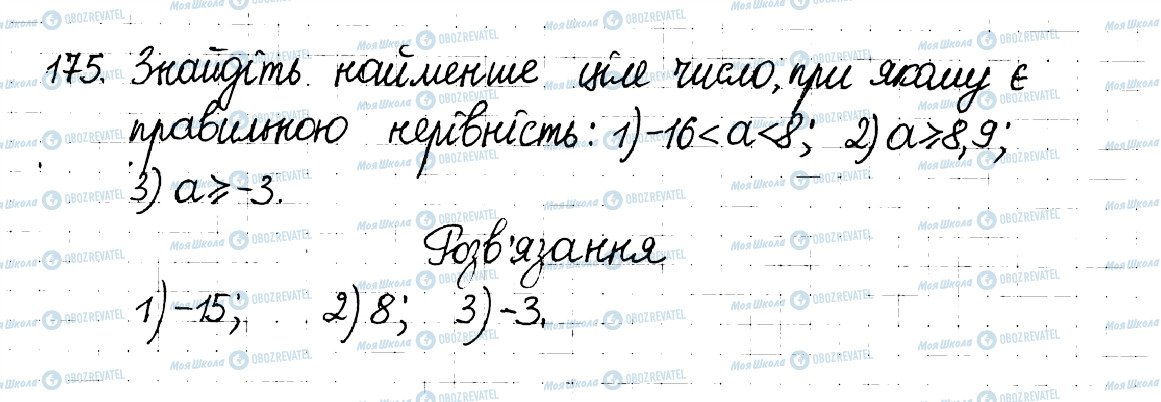 175. Знайдіть найменше ціле число, при якому є
правильною нерівність: 1) -16 < a < 8; 2) a ⩾ 8,9;
3) a ⩾ -3.
Розв'язання
1) -15; 2) 8; 3) -3.